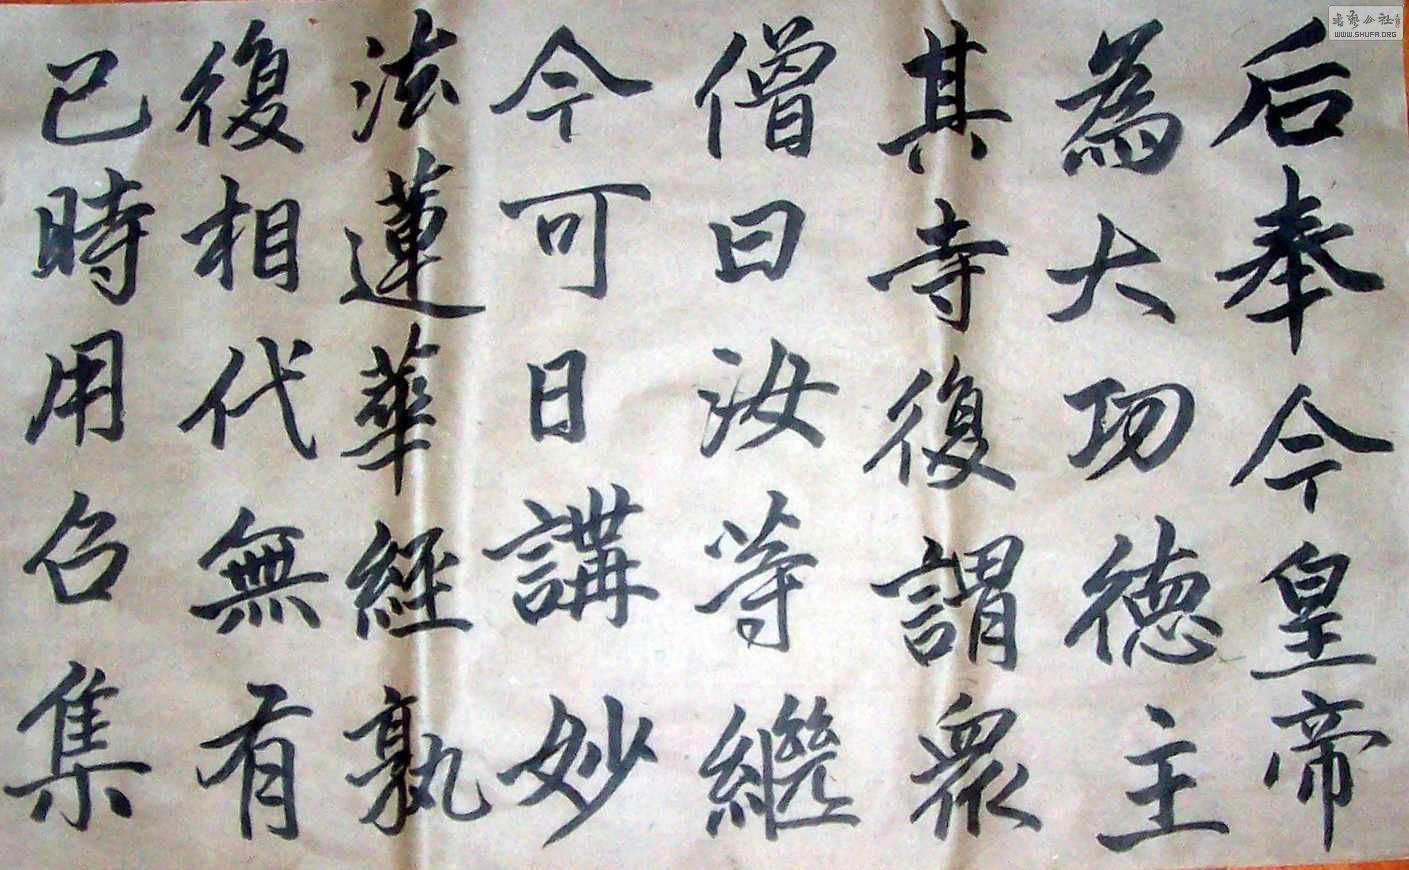 后奉今皇帝
為大功德主
其寺復謂眾
僧曰汝等繼
今可日講妙
法蓮華經孰
復相代無有
已時用召集
WWW.SHUFA.ORG